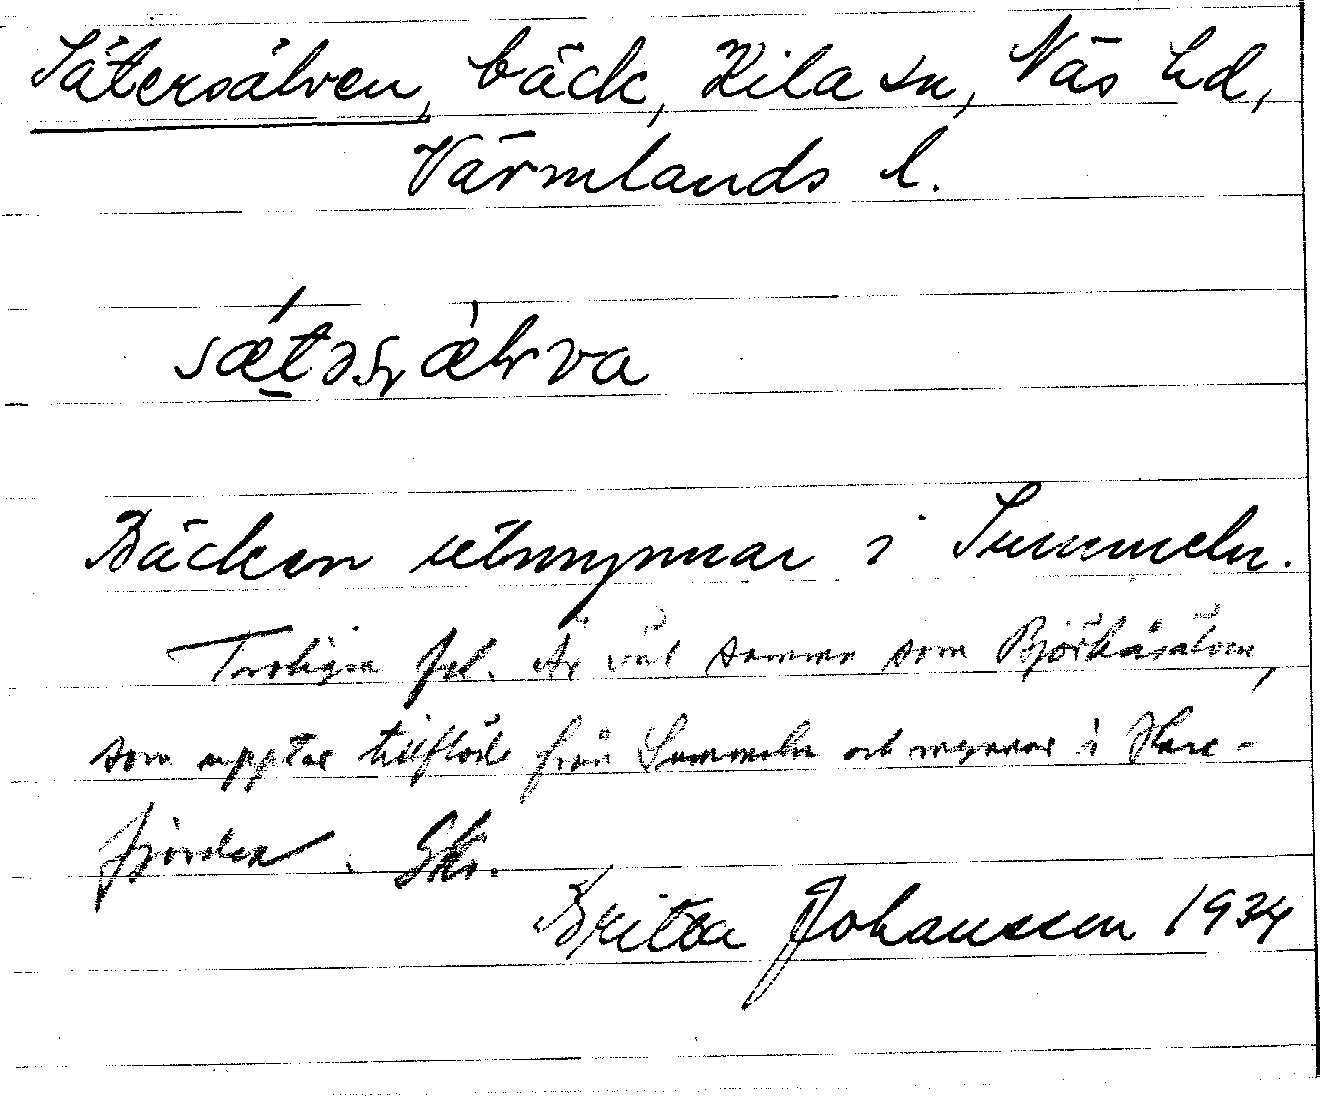 Sätersälven, bäck, Kila sn, Näs hd,
Värmlands l.
sǽtəṣæ̀lva
Bäcken utmynnar i Summeln.
Troligen fel. Är väl samma som Björkåsälven,
som upptar tillflöde från Summeln och mynnar i Hare-
fjorden. Skr.
Britta Johansson 1934